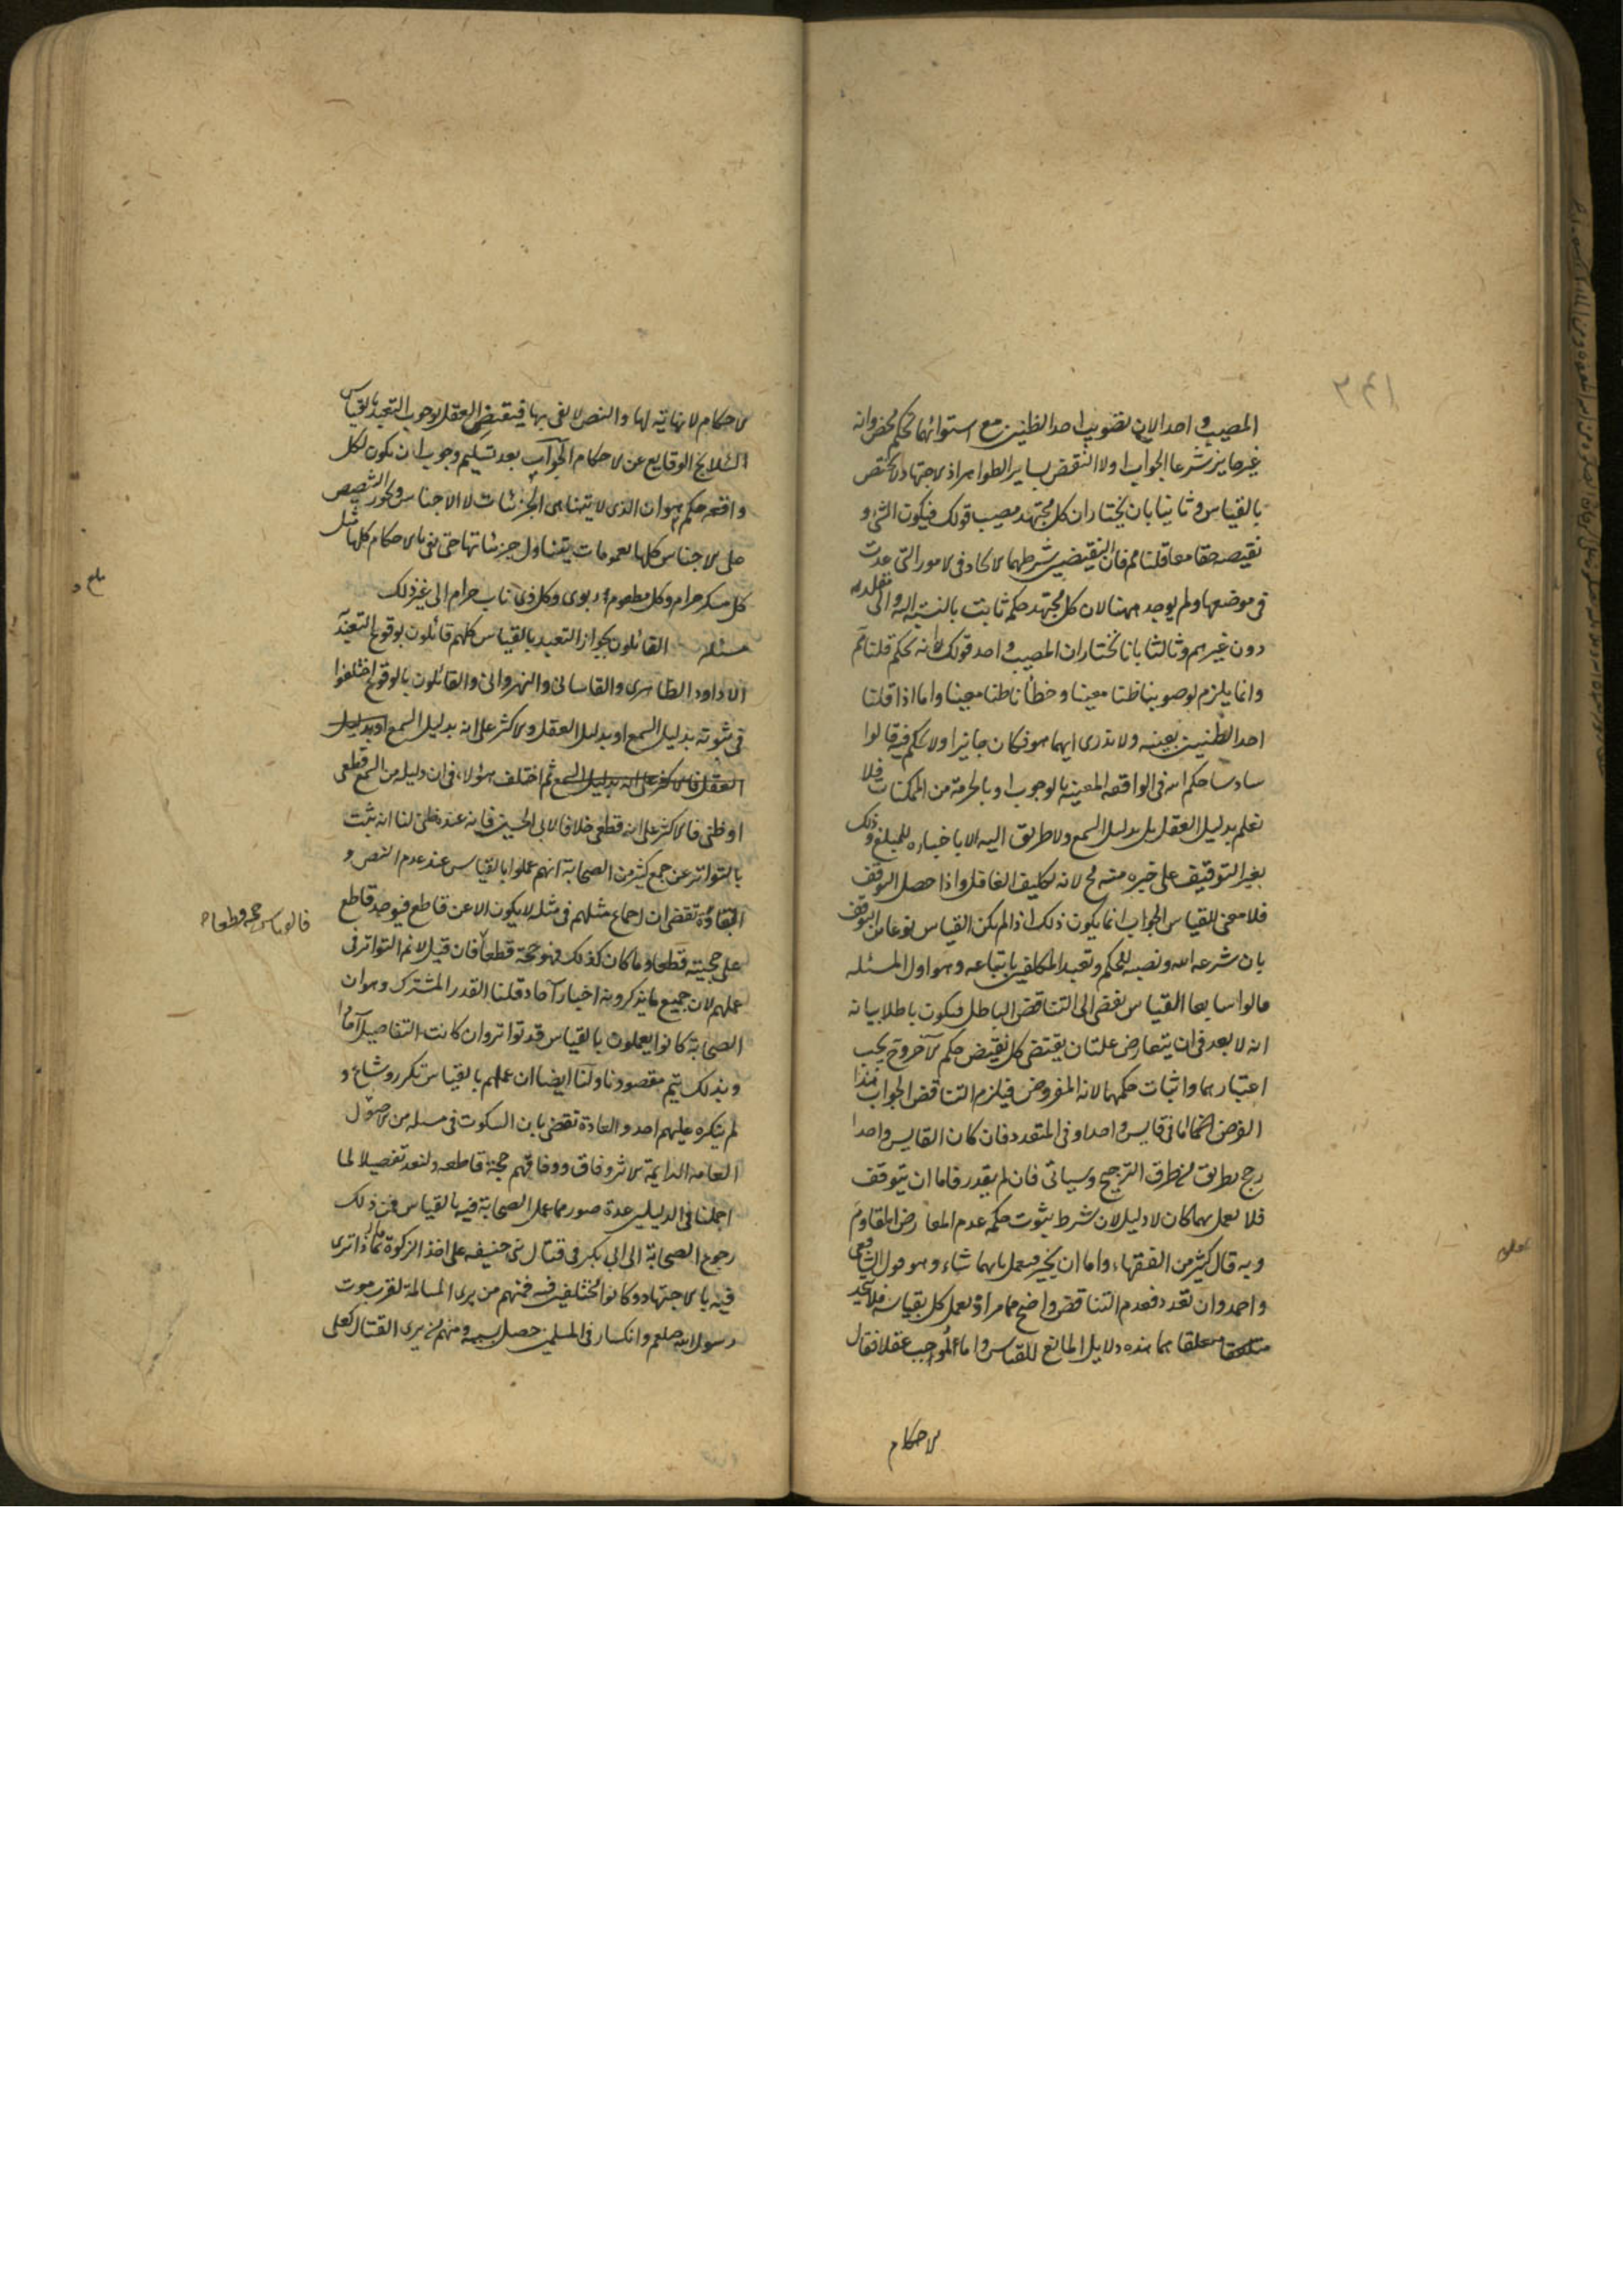 ٢٤١
المصيب واحد الان تصويب احد الظنين مع استوائهما تحكم محض وانه
غير جايز شرعا الجواب اولا النقض بساير الظواهر اذ لاجتهاد لا يختص
بالقياس وثانيا بان يختار ان كل مجتهد مصيب قولك فيكون الشئ و
نقيضه حقا معا قلنا مم فان النقيضين شرطهما لا تحاد فى لامور التى عدت
فى موضعها ولم يوجد ههنا لان كل مجتهد حكم ثابت بالنسبة اليه والى مقلديه
دون غيرهم وثالثا بانا نختار ان المصيب واحد قولك لانه تحكم قلنا مم
وانما يلزم لو صوبنا ظنا معينا وخطأنا ظنا معينا واما اذا قلنا
احد الظنين بعينه ولا ندرى ايهما هو فكان جايزا ولا تحكم فيه قالوا
سادسا حكم الله فى الواقعه المعينه بالوجوب او بالحرمة من الممكنات فلا
تعلم بدليل العقل بل بدليل السمع ولا طريق اليه الا باخباره للمبلغ وذلك
بغير التوقيف على خبره منه مح لانه تكليف الغافل واذا حصل التوقف
فلا معنى للقياس الجواب انما يكون ذلك اذا لم يكن القياس نوعا من التوقف
بان شرعه الله ونصبه للحكم وتعبد المكلفين باتباعه وهو اول المسئله
قالوا سابعا القياس يفضى الى التناقض الباطل فيكون باطلا بيانه
انه لا بعد فى ان يتعارض علتان يقتضى كل نقيض حكم لآخر وح يجب
اعتبارهما واثبات حكمهما لانه المفروض فيلزم التناقض الجواب هذا
الفرض انما اما فى قايس واحد او فى المتعدد فان كان القايس واحدا
رجح بطريق من طرق الترجيح وسياتى فان لم يقدر فاما ان يتوقف
فلا يعمل بهما كان لا دليل لان شرط ثبوت حكمه عدم المعارض المقاوم
وبه قال كثير من الفقهاء واما ان يخير فيعمل بايهما شاء وهو قول الشافعى
واحمد وان تعدد فعدم التناقض واضح مما مر اذ يعمل كل بقياسه فلا يتحد
متعلقا متعلقا هما هذه دلايل المانع للقياس واما الموجب عقلا فقال
لاحكام
لاحكام لا نهاية لها والنص لا يفى بها فيقتضى العقل بوجوب التعبد بالقياس
لئلا يخ الوقايع عن لاحكام الجواب بعد تسليم وجوب ان يكون لكل
واقعه حكم هو ان الذى لا يتناهى الجزئيات لا الاجناس ويجوز التنصيص
على لاجناس كلها بعمومات يتناول جزئياتها حتى يفى بالاحكام كلها مثل
كل مسكر حرام وكل مطعوم ربوى وكل ذى ناب حرام الى غير ذلك
مسئله القائلون بجواز التعبد بالقياس كلهم قائلون بوقوع التعبد
الا داود الظاهرى والقاسانى والنهروانى والقائلون بالوقوع اختلفوا
فى ثبوته بدليل السمع او بدليل العقل ولاكثر على انه بدليل السمع او بدليل
العقل فالاكثر على انه بدليل السمع ثم اختلف هؤلاء فى ان دليله من السمع قطعى
او ظنى فالاكثر على انه قطعى خلافا لابى الحسين فانه عنده ظنى لنا انه ثبت
بالتواتر عن جمع كثير من الصحابة انهم عملوا بالقياس عند عدم النص و
العادة تقضى ان اجماع مثلهم فى مثله لا يكون الا عن قاطع فيوجد قاطع
على حجيته قطعا وما كان كذلك فهو حجة قطعا فان قيل لا نم التواتر فى
فالقياس حجة قطعا
عملهم لان جميع ما يذكرونه اخبار آحاد قلنا القدر المشترك وهو ان
الصحابة كانوا يعملون بالقياس قد تواتر وان كانت التفاصيل آحادا
وبذلك يتم مقصودنا ولنا ايضا ان عملهم بالقياس تكرر وشاع و
لم ينكره عليهم احد والعادة تقضى بان السكوت فى مسله من لاصول
العامه الدايمة لاثر وفاق ووفاقهم حجة قاطعه ولنعد تفصيلا لما
اجملنا فى الدليلين عدة صور مما عمل الصحابة فيه بالقياس فمن ذلك
رجوع الصحابة الى ابى بكر فى قتال بنى حنيفه على اخذ الزكوة
فيه بالاجتهاد وكانوا مختلفين فيه فمنهم من يرى المسالمة لقرب موت
رسول الله صلعم وانكسار فى المسلمين حصل بسببه ومنهم من يرى القتال